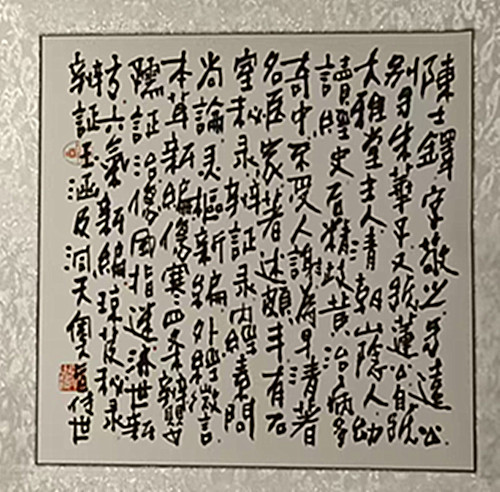 陳士鐸字敬之号遠公
别号朱華子又號蓮公自號
大雅堂主人清朝山陰人幼
讀經史后精歧黄治病多
奇中不受人謝為清著
名医家著述頗丰有石
室秘录辩証录内經素問
尚論灵樞新編外經微言
本草新編傷寒四条辨嬰
孺証治傷風指迷济世新
方六氣新編琼笈秘录
辩証玉函及洞天奥旨传世